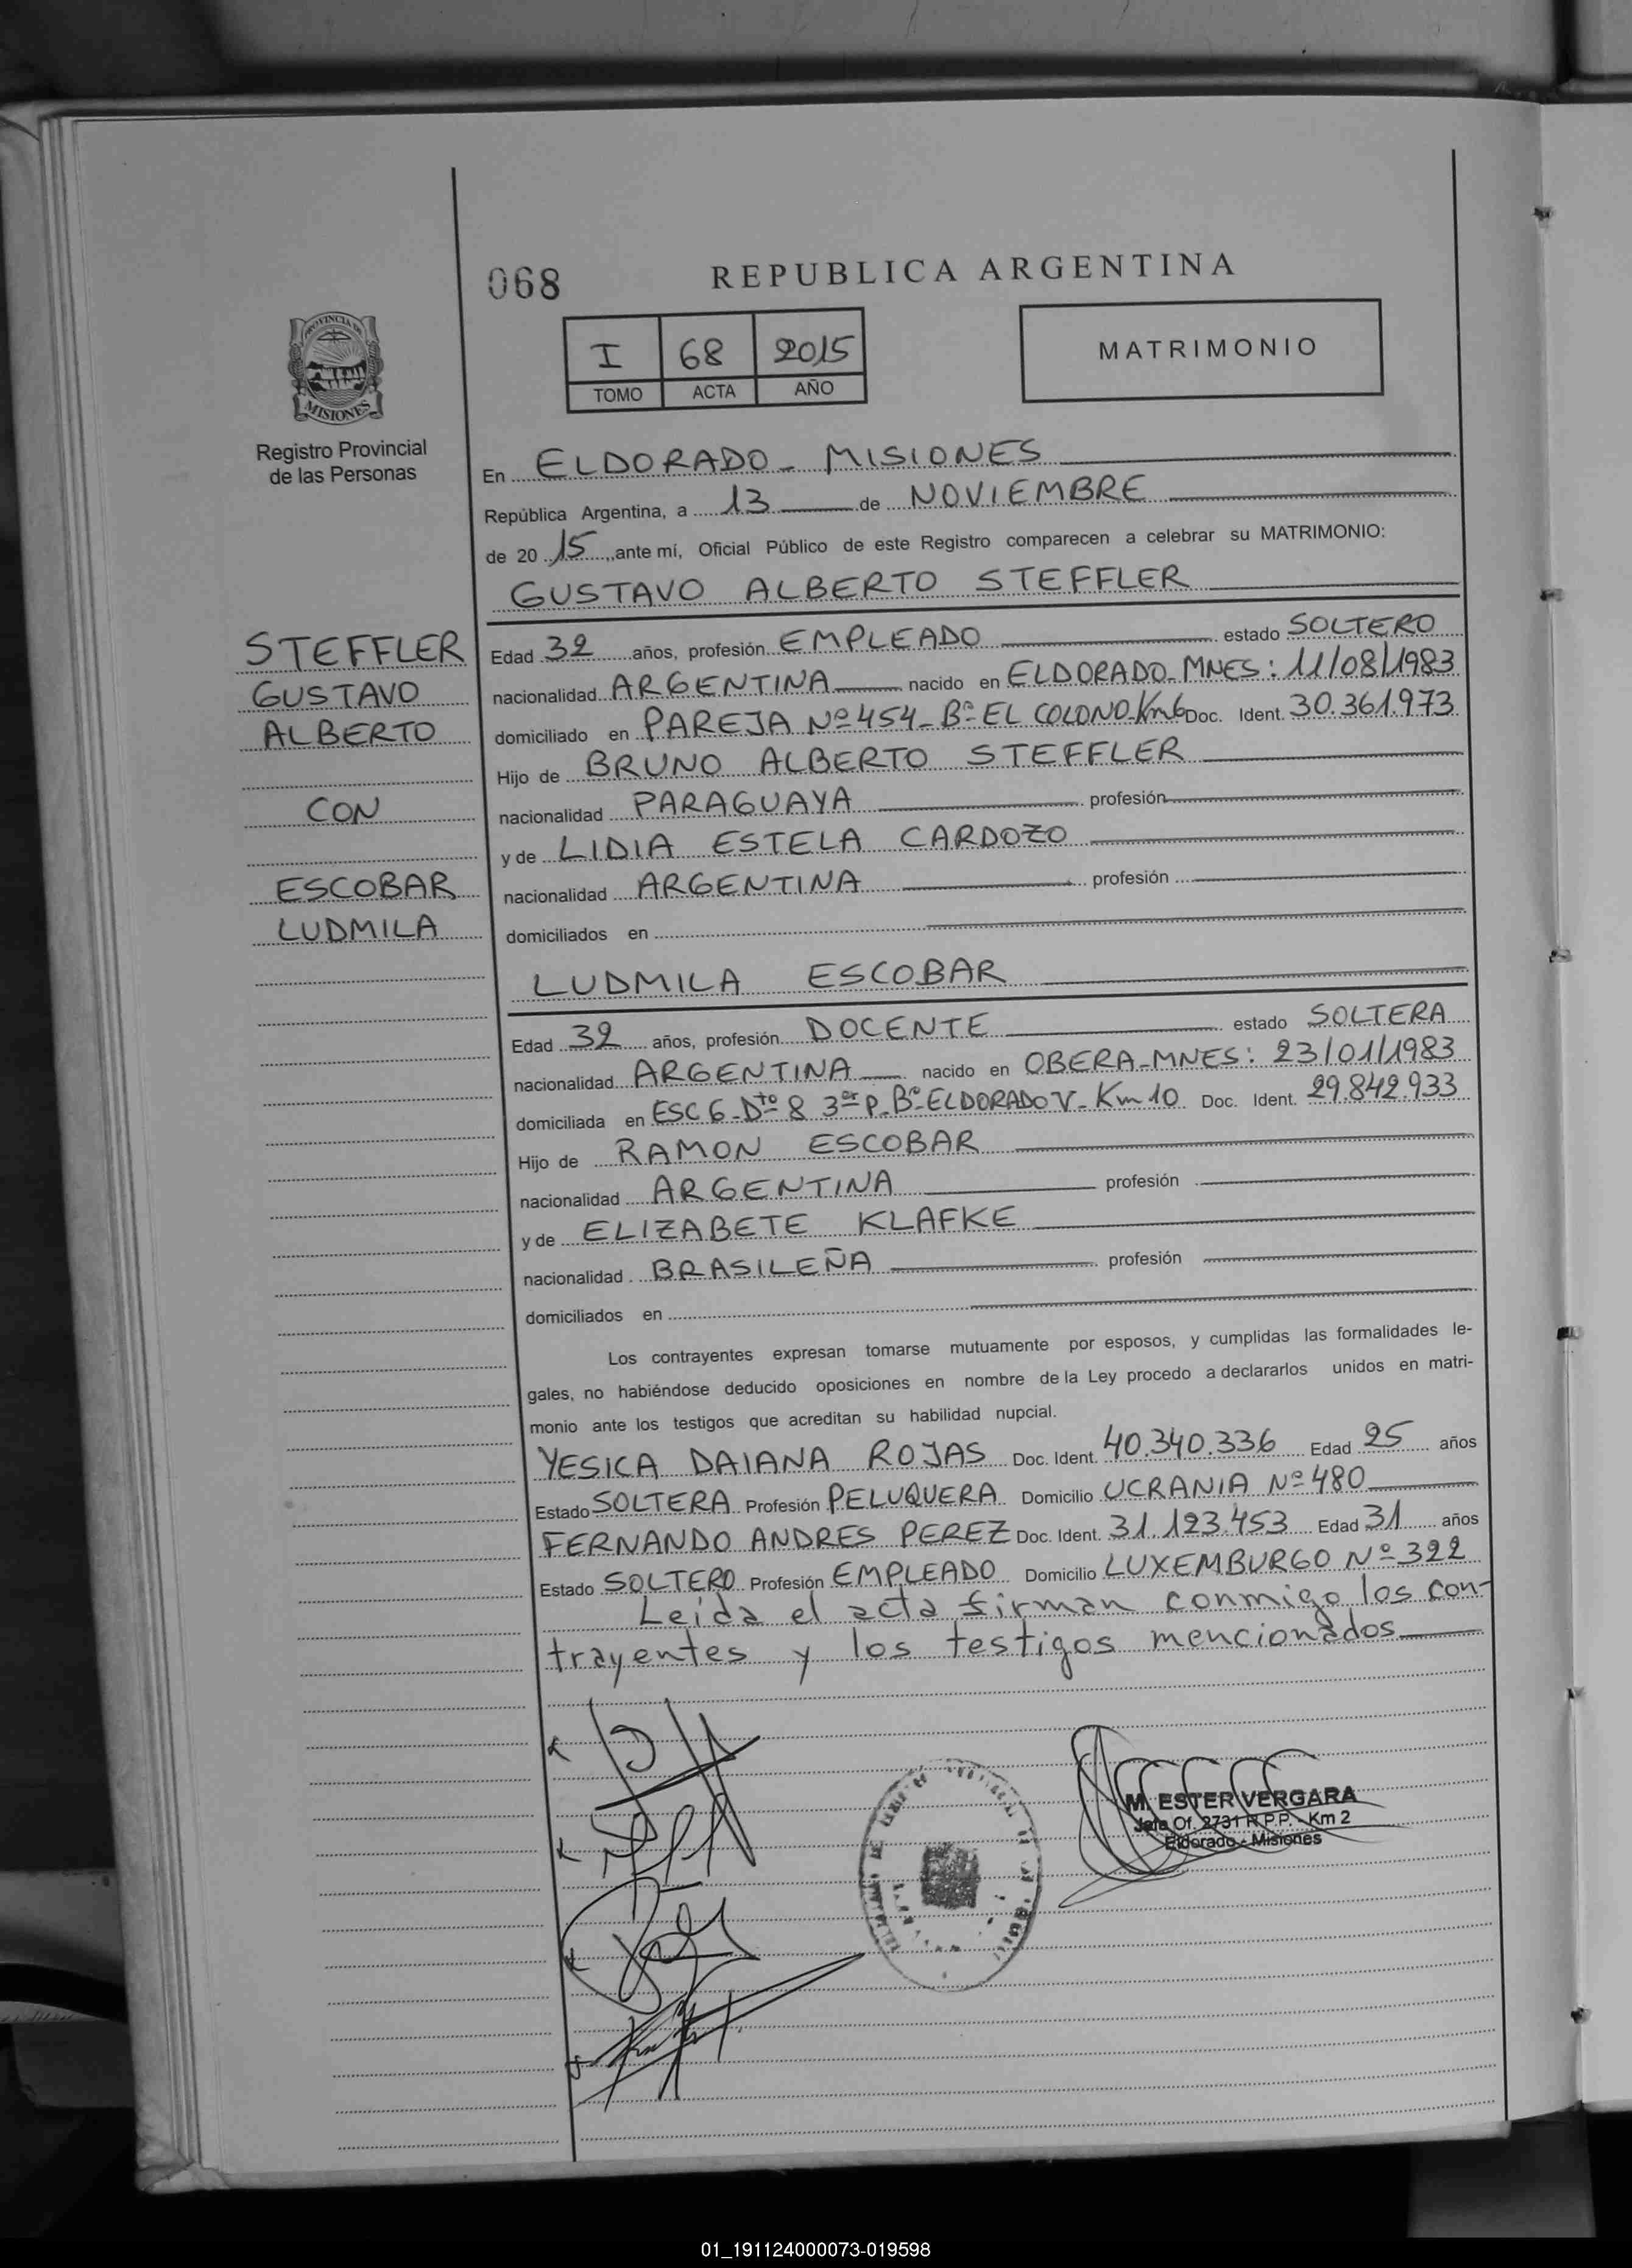 068
REPUBLICA ARGENTINA
I 68 2015
TOMO ACTA AÑO
MATRIMONIO
PROVINCIA DE
MISIONES
Registro Provincial
de las Personas
En ELDORADO - MISIONES
República Argentina, a 13 de NOVIEMBRE
de 20 15, ante mí, Oficial Público de este Registro comparecen a celebrar su MATRIMONIO:
GUSTAVO ALBERTO STEFFLER
STEFFLER
GUSTAVO
ALBERTO
CON
ESCOBAR
LUDMILA
Edad 32 años, profesión EMPLEADO estado SOLTERO
nacionalidad ARGENTINA nacido en ELDORADO-MNES: 11/08/1983
domiciliado en PAREJA Nº 454 - Bº EL COLONO-Km6 Doc. Ident. 30.361.973
Hijo de BRUNO ALBERTO STEFFLER
nacionalidad PARAGUAYA profesión
y de LIDIA ESTELA CARDOZO
nacionalidad ARGENTINA profesión
domiciliados en
LUDMILA ESCOBAR
Edad 32 años, profesión DOCENTE estado SOLTERA
nacionalidad ARGENTINA nacido en OBERA-MNES: 23/01/1983
domiciliada en ESC 6 - Dto 8 3er P. Bº ELDORADO V - Km 10 Doc. Ident. 29.842.933
Hijo de RAMON ESCOBAR
nacionalidad ARGENTINA profesión
y de ELIZABETE KLAFKE
nacionalidad BRASILEÑA profesión
domiciliados en
Los contrayentes expresan tomarse mutuamente por esposos, y cumplidas las formalidades le-
gales, no habiéndose deducido oposiciones en nombre de la Ley procedo a declararlos unidos en matri-
monio ante los testigos que acreditan su habilidad nupcial.
YESICA DAIANA ROJAS Doc. Ident. 40.340.336 Edad 25 años
Estado SOLTERA Profesión PELUQUERA Domicilio UCRANIA Nº 480
FERNANDO ANDRES PEREZ Doc. Ident. 31.123.453 Edad 31 años
Estado SOLTERO Profesión EMPLEADO Domicilio LUXEMBURGO Nº 322
Leida el acta firman conmigo los con-
trayentes y los testigos mencionados
M. ESTER VERGARA
Jefa Of. 2731 R.P.P. - Km 2
Eldorado - Misiones
01_191124000073-019598